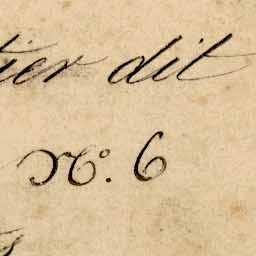 tier dit
No. 6